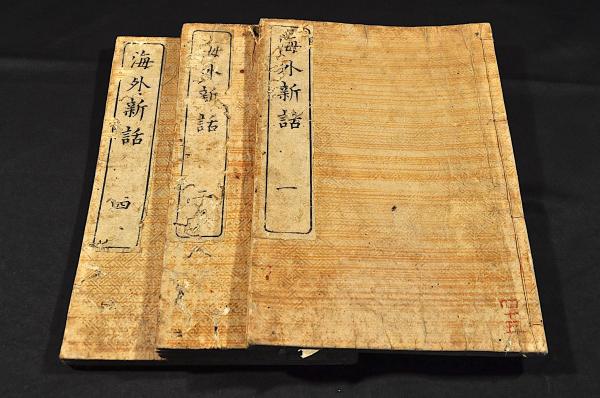 海外新話 一
海外新話
海外新話 四